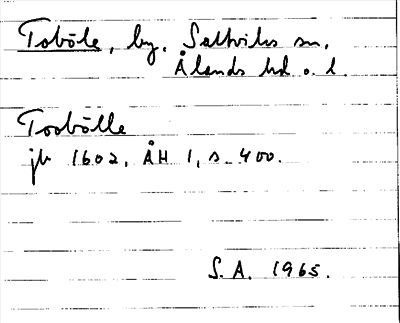 Toböle, by. Saltviks sn,
Ålands hd o. l.
Tosbölle
jb 1602, ÅH 1, s. 400.
S.A. 1965.